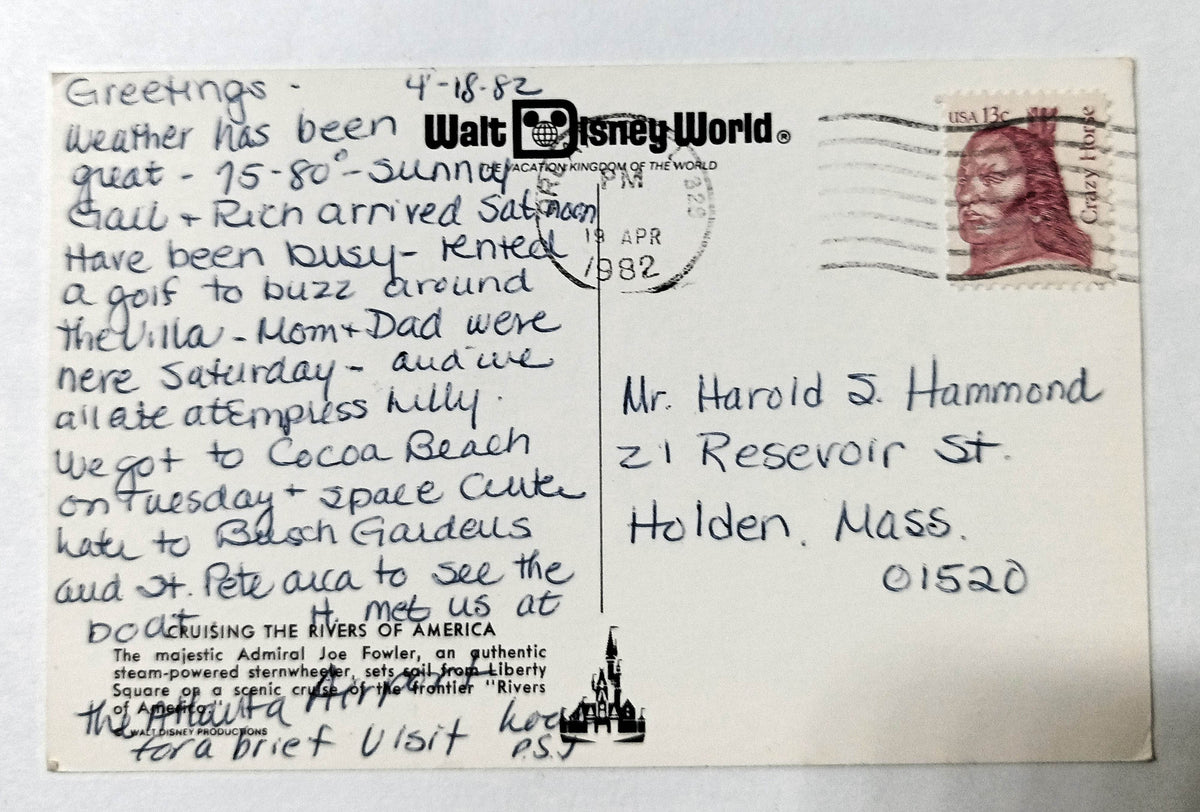 Greetings - 4-18-82
weather has been
great - 75-80° - sunny
Gail + Rich arrived Sat. noon
Have been busy - rented
a golf to buzz around
the Villa - Mom + Dad were
here Saturday - and we
all ate at Empress Lilly.
We got to Cocoa Beach
on Tuesday + space Center
to Busch Gardens
and St. Pete area to see the
boat H. met us at
the Atlanta Airport
for a brief visit
P.S.J
Walt Disney World®
THE VACATION KINGDOM OF THE WORLD
PM
329
19 APR
1982
USA 13c
Crazy Horse
Mr. Harold S. Hammond
21 Resevoir St.
Holden, Mass.
01520
CRUISING THE RIVERS OF AMERICA
The majestic Admiral Joe Fowler, an authentic
steam-powered sternwheeler, sets sail from Liberty
Square on a scenic cruise of the frontier "Rivers
of America."
© WALT DISNEY PRODUCTIONS